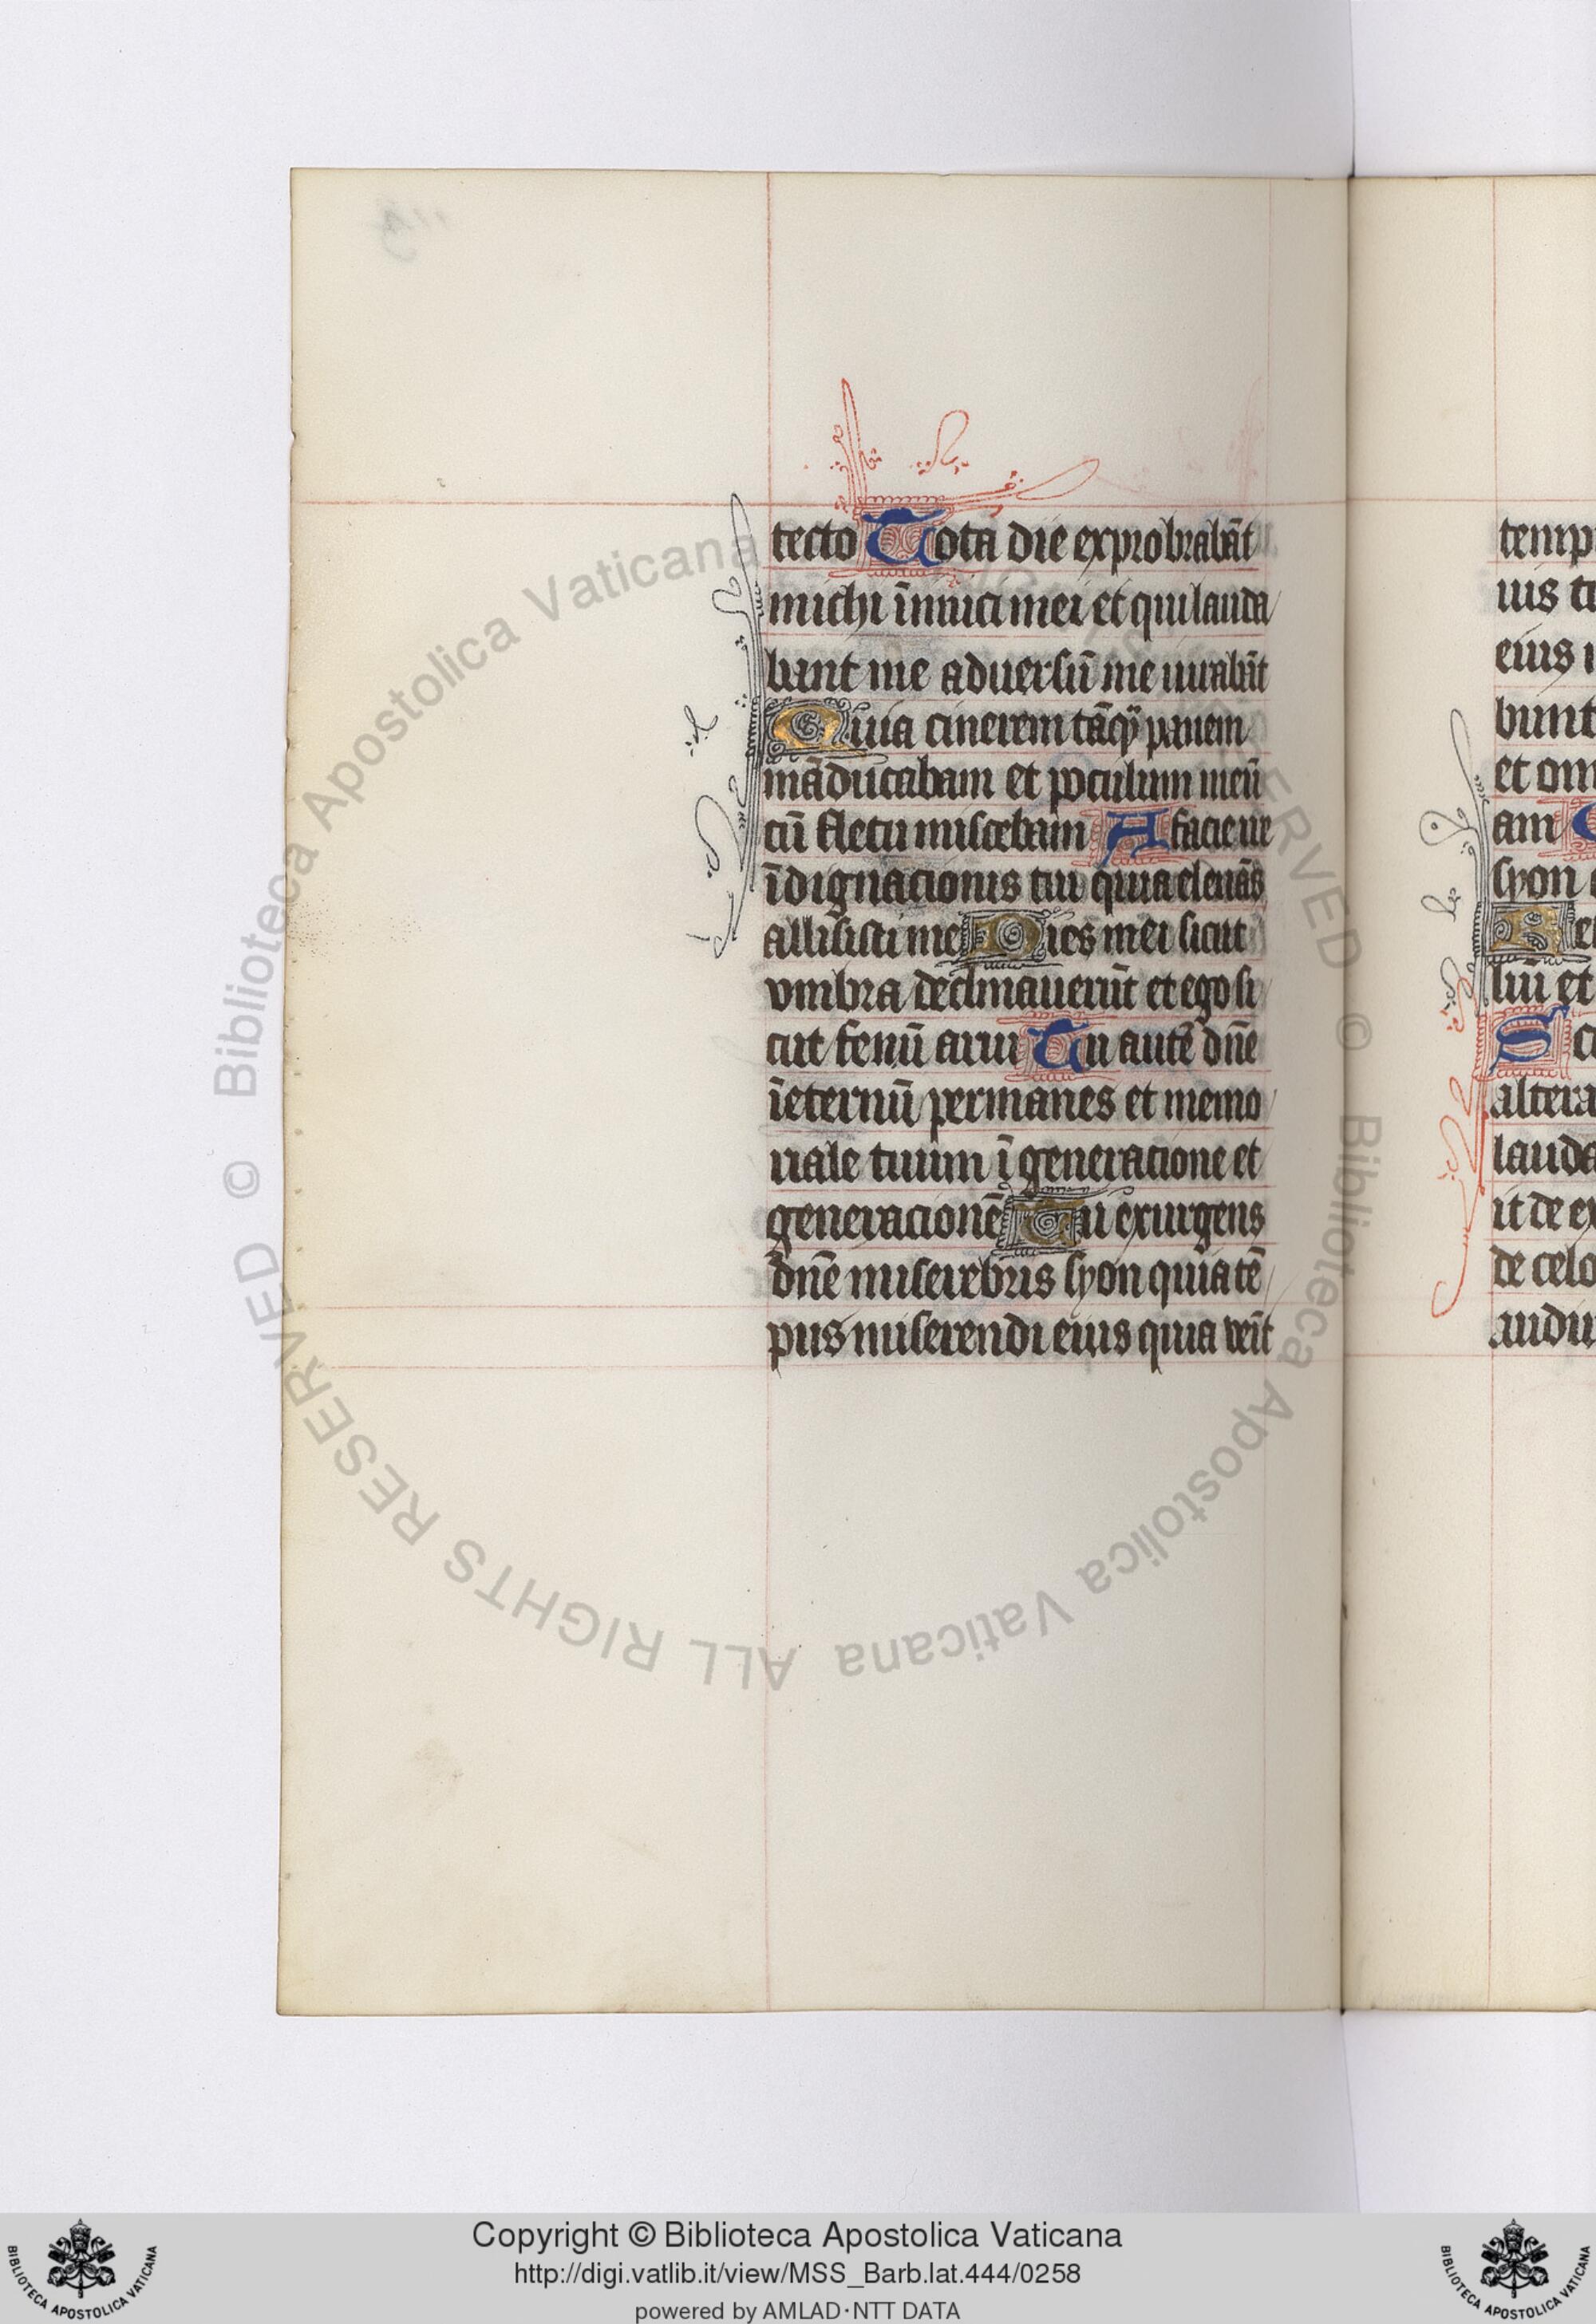 tecto Tota die exprobrabāt
michi īimici mei et qui lauda
bant me aduersū me iurabāt
Quia cinerem tāqȝ panem
māducabam et poculum meū
cū fletu miscebam A facie ire
īdignacionis tui quia eleuās
allisisti me Dies mei sicut
vmbra declinauerūt et ego si
cut fenū arui Tu autē dn̄e
ī eternū permanes et memo
riale tuum ī generacione et
generacionē Tu exurgens
dn̄e misereb̄ris syon quia tē
pus miserendi eius quia ven̄it
temp
uis ti
eius i
bunt
et om
am
syon
liū et
S
altera
lauda
it de ex
de celo
audi
Biblioteca Apostolica Vaticana © Biblioteca Apostolica Vaticana ALL RIGHTS RESERVED ©
Copyright © Biblioteca Apostolica Vaticana
http://digi.vatlib.it/view/MSS_Barb.lat.444/0258
powered by AMLAD·NTT DATA
BIBLIOTECA APOSTOLICA VATICANA
BIBLIOTECA APOSTOLICA VATICANA